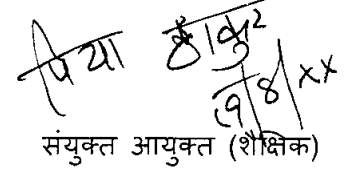 पिया ठाकुर
19/8/xx
संयुक्त आयुक्त (शैक्षिक)